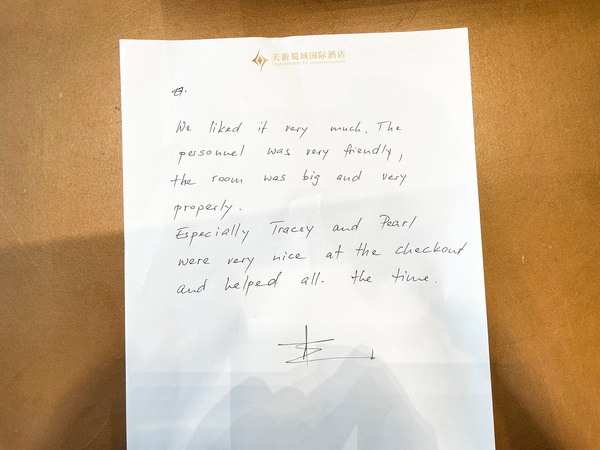 天新蜀域国际酒店
We liked it very much. The
personnel was very friendly,
the room was big and very
properly.
Especially Tracey and Pearl
were very nice at the checkout
and helped all. the time.